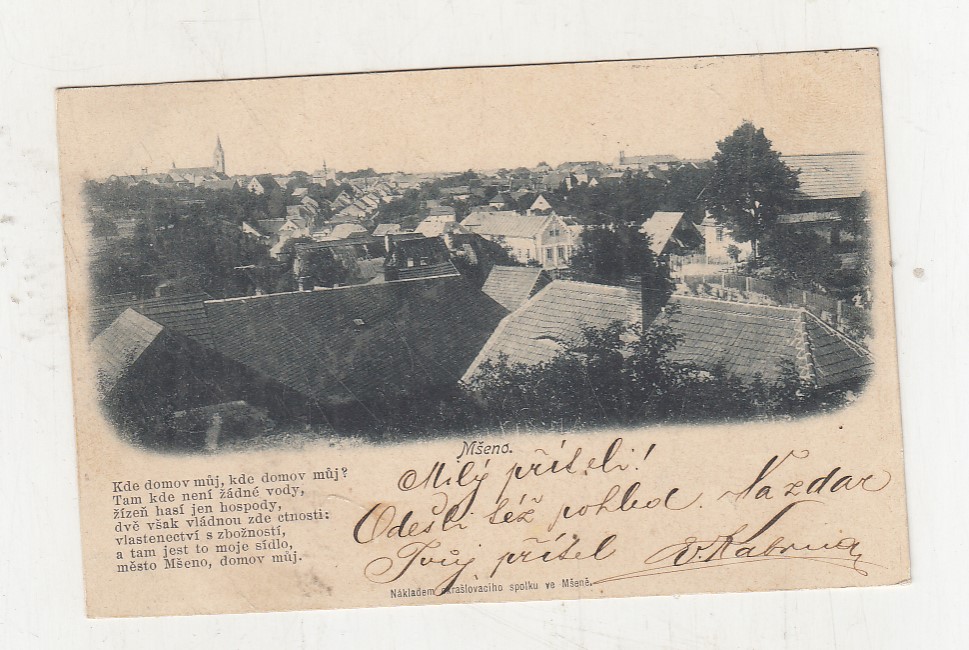 Mšeno.
Kde domov můj, kde domov můj?
Tam kde není žádné vody,
žízeň hasí jen hospody,
dvě však vládnou zde ctnosti:
vlastenectví s zbožností,
a tam jest to moje sídlo,
město Mšeno, domov můj.
Milý příteli!
Odešli též pohled. Nazdar
Tvůj přítel
Nákladem okrašlovacího spolku ve Mšeně.